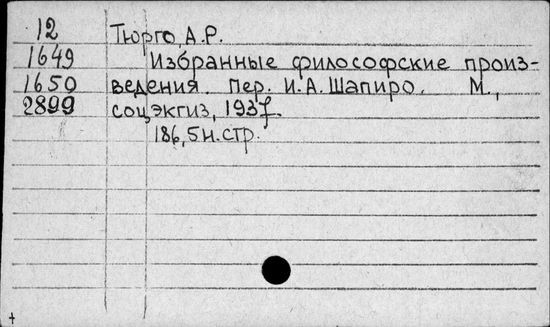 12 Тюрго, А.Р.
1649 Избранные философские произ-
1650 ведения. Пер. И.А. Шапиро. М.,
2899 соцэкгиз, 1937.
186, 5 н. стр.